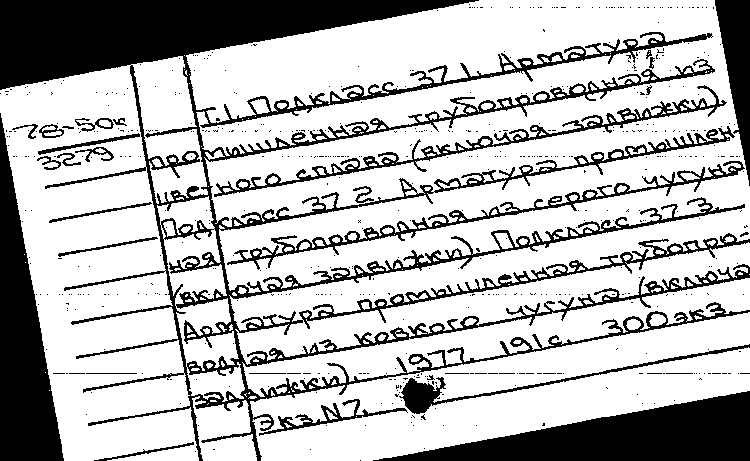 78-50к
3279
Т.1. Подкласс 37 1. Арматура
промышленная трубопроводная из
цветного сплава (включая задвижки).
Подкласс 37 2. Арматура промышлен-
ная трубопроводная из серого чугуна
(включая задвижки). Подкласс 37 3.
Арматура промышленная трубопро-
водная из ковкого чугуна (включая
задвижки). 1977. 191с. 300экз.
Экз.N7.